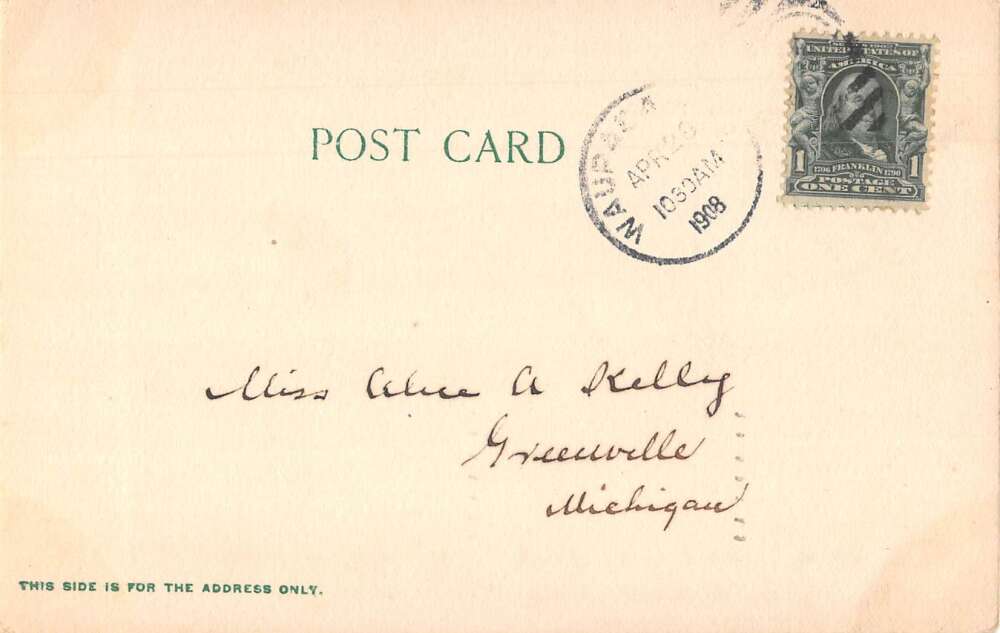 POST CARD
WAUPACA
APR 26
1030AM
1908
SERIES 1902
UNITED STATES OF
AMERICA
1706 FRANKLIN 1790
POSTAGE
1 ONE CENT 1
Miss Alice A Kelly
Greenville
Michigan
THIS SIDE IS FOR THE ADDRESS ONLY.